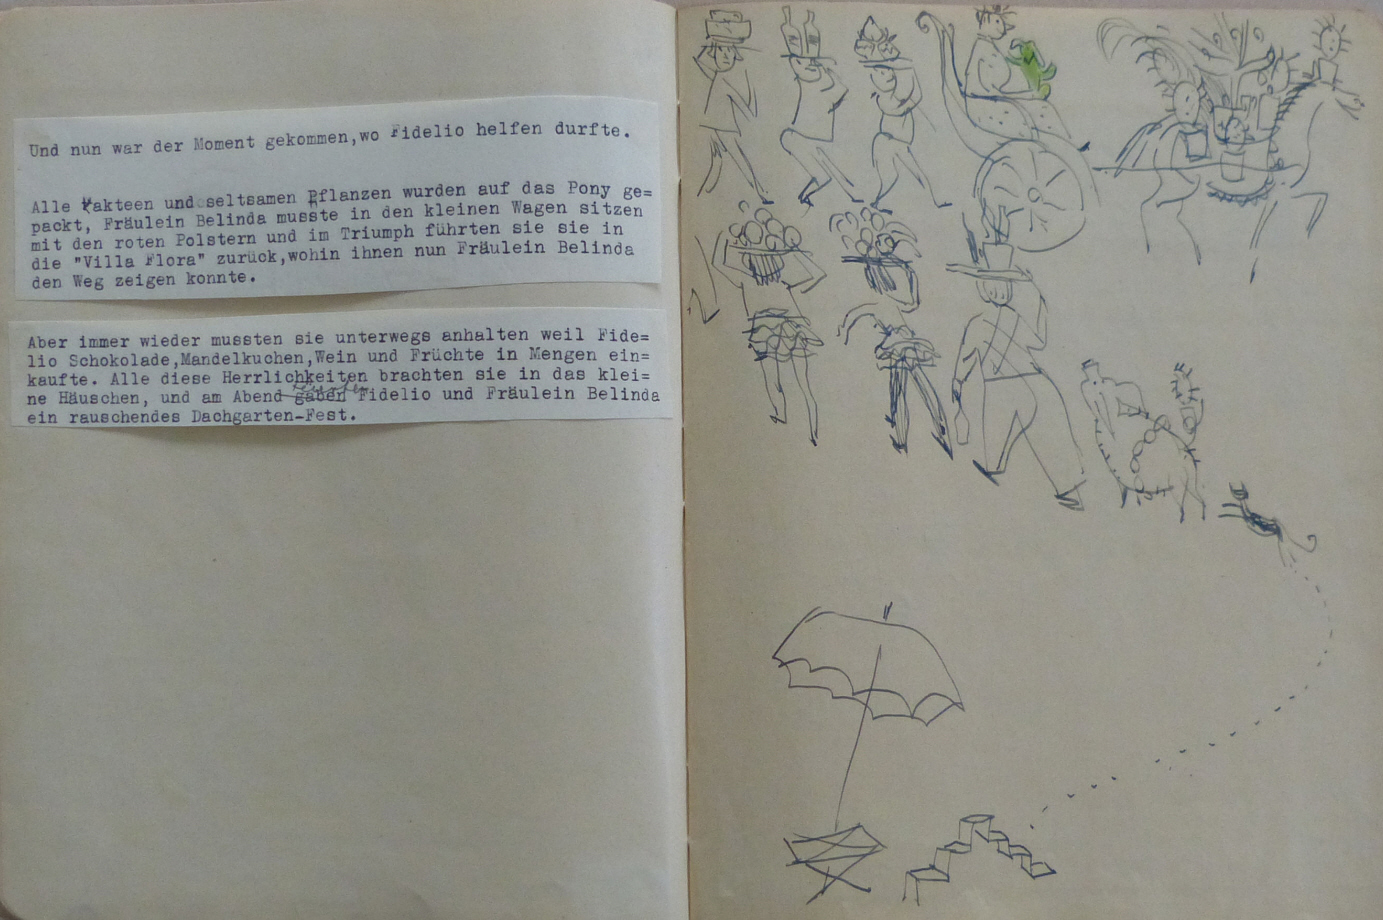 Und nun war der Moment gekommen,wo Fidelio helfen durfte.
Alle Kakteen und seltsamen Pflanzen wurden auf das Pony ge=
packt, Fräulein Belinda musste in den kleinen Wagen sitzen
mit den roten Polstern und im Triumph führten sie sie in
die "Villa Flora" zurück,wohin ihnen nun Fräulein Belinda
den Weg zeigen konnte.
Aber immer wieder mussten sie unterwegs anhalten weil Fide=
lio Schokolade,Mandelkuchen,Wein und Früchte in Mengen ein=
kaufte. Alle diese Herrlichkeiten brachten sie in das klei=
ne Häuschen, und am Abend gaben Fidelio und Fräulein Belinda
ein rauschendes Dachgarten-Fest.